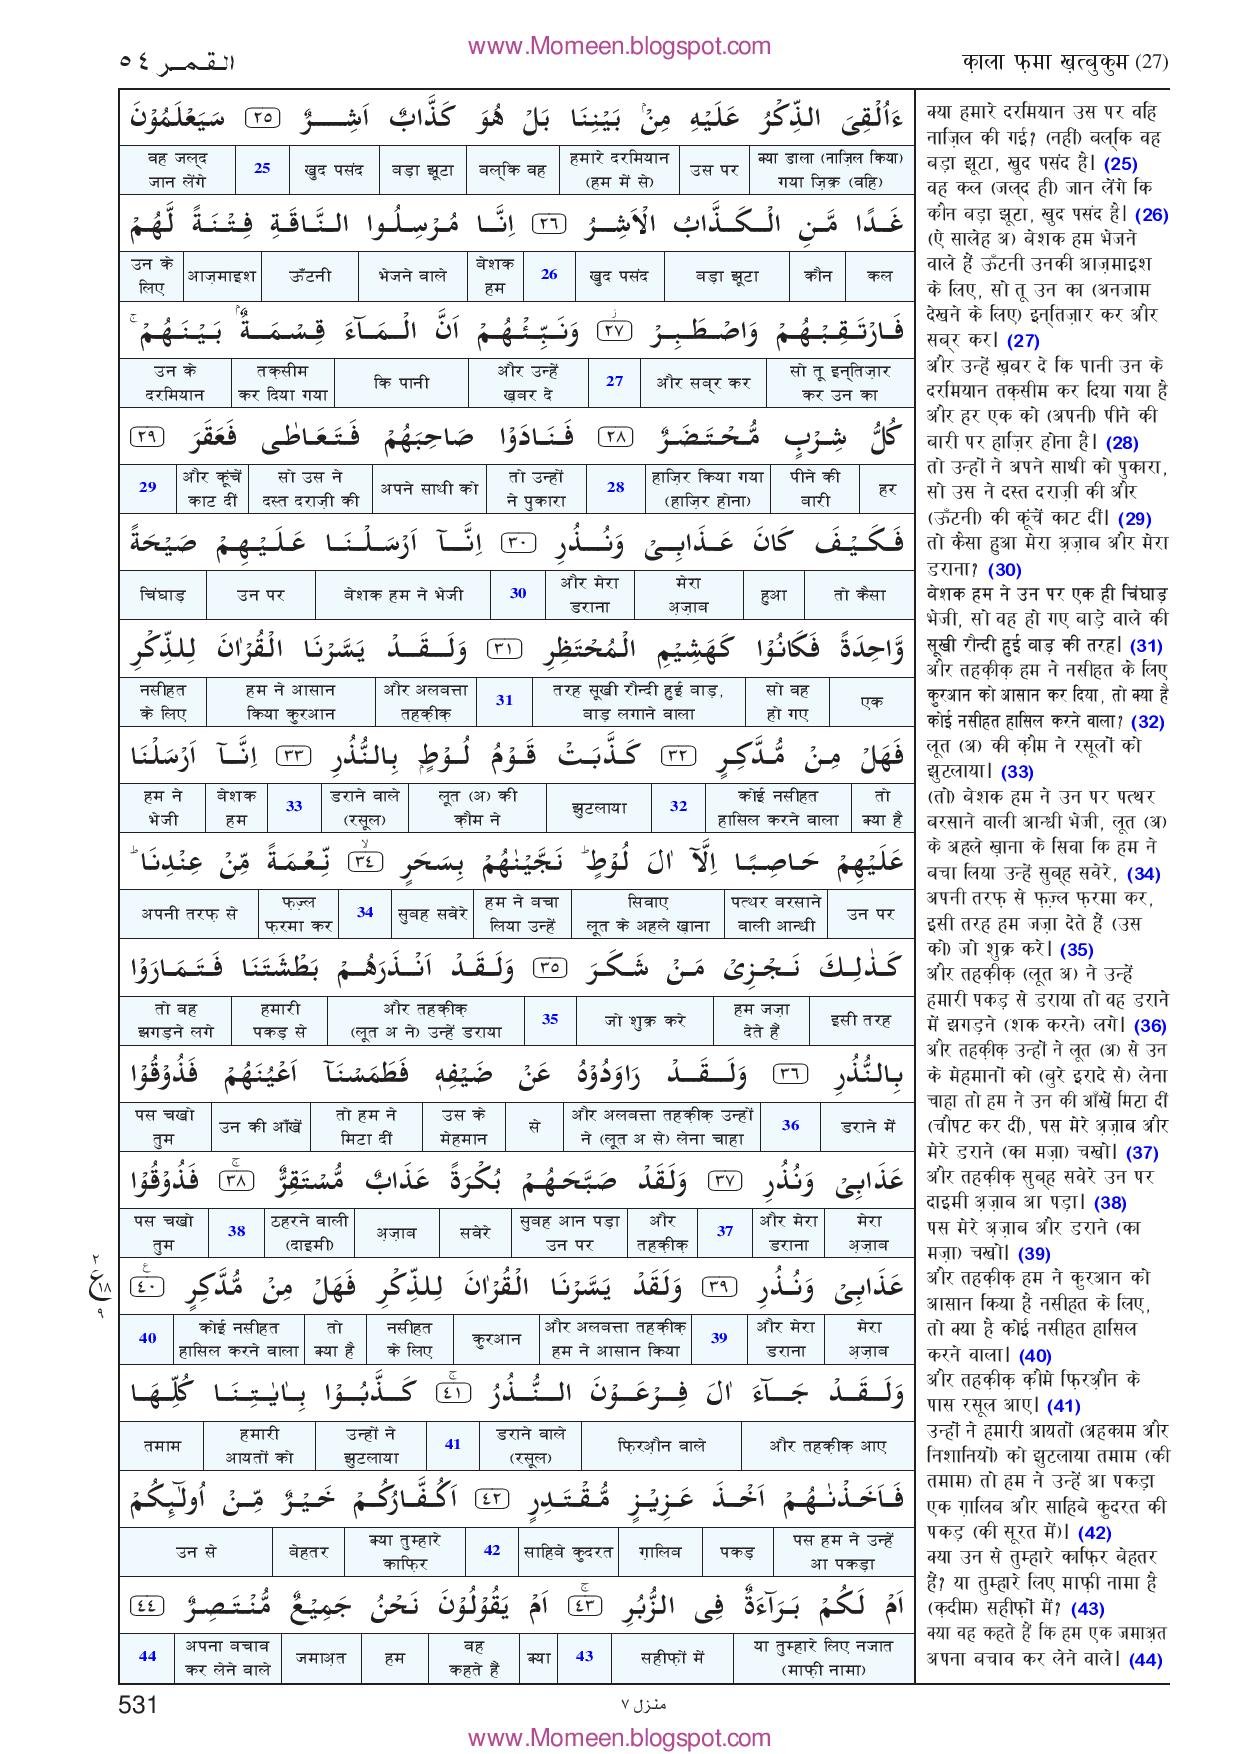 www.Momeen.blogspot.com
القمر ٥٤
क़ाला फ़मा ख़त्बुकुम (27)
ءَاُلْقِیَ الذِّكْرُ عَلَیْهِ مِنْۢ بَیْنِنَا بَلْ هُوَ كَذَّابٌ اَشِرٌ ٢٥ سَیَعْلَمُوْنَ
क्या डाला (नाज़िल किया) गया ज़िक्र (वहि) | उस पर | हमारे दरमियान (हम में से) | बल्कि वह | बड़ा झूटा | खुद पसंद | 25 | वह जल्द जान लेंगे
غَدًا مَّنِ الْكَذَّابُ الْاَشِرُ ٢٦ اِنَّا مُرْسِلُوا النَّاقَةِ فِتْنَةً لَّهُمْ
कल | कौन | बड़ा झूटा | खुद पसंद | 26 | बेशक हम | भेजने वाले | ऊँटनी | आज़माइश | उन के लिए
فَارْتَقِبْهُمْ وَاصْطَبِرْ ٢٧ وَنَبِّئْهُمْ اَنَّ الْمَآءَ قِسْمَةٌۢ بَیْنَهُمْ ۚ
सो तू इन्तिज़ार कर उन का | और सब्र कर | 27 | और उन्हें ख़बर दे | कि पानी | तक़सीम कर दिया गया | उन के दरमियान
كُلُّ شِرْبٍ مُّحْتَضَرٌ ٢٨ فَنَادَوْا صَاحِبَهُمْ فَتَعَاطٰی فَعَقَرَ ٢٩
हर | पीने की बारी | हाज़िर किया गया (हाज़िर होना) | 28 | तो उन्हों ने पुकारा | अपने साथी को | सो उस ने दस्त दराज़ी की | और कूंचें काट दीं | 29
فَكَیْفَ كَانَ عَذَابِیْ وَنُذُرِ ٣٠ اِنَّآ اَرْسَلْنَا عَلَیْهِمْ صَیْحَةً
तो कैसा | हुआ | मेरा अज़ाब | और मेरा डराना | 30 | बेशक हम ने भेजी | उन पर | चिंघाड़
وَّاحِدَةً فَكَانُوْا كَهَشِیْمِ الْمُحْتَظِرِ ٣١ وَلَقَدْ یَسَّرْنَا الْقُرْاٰنَ لِلذِّكْرِ
एक | सो वह हो गए | तरह सूखी रौन्दी हुई बाड़, बाड़ लगाने वाला | 31 | और अलबत्ता तहक़ीक़ | हम ने आसान किया कुरआन | नसीहत के लिए
فَهَلْ مِنْ مُّدَّكِرٍ ٣٢ كَذَّبَتْ قَوْمُ لُوْطٍۭ بِالنُّذُرِ ٣٣ اِنَّآ اَرْسَلْنَا
तो क्या है | कोई नसीहत हासिल करने वाला | 32 | झुटलाया | लूत (अ) की क़ौम ने | डराने वाले (रसूल) | 33 | बेशक हम | हम ने भेजी
عَلَیْهِمْ حَاصِبًا اِلَّآ اٰلَ لُوْطٍ ؕ نَجَّیْنٰهُمْ بِسَحَرٍ ٣٤ نِّعْمَةً مِّنْ عِنْدِنَا ؕ
उन पर | पत्थर बरसाने वाली आन्धी | सिवाए लूत के अहले ख़ाना | हम ने बचा लिया उन्हें | सुबह सवेरे | 34 | फ़ज़्ल फ़रमा कर | अपनी तरफ़ से
كَذٰلِكَ نَجْزِیْ مَنْ شَكَرَ ٣٥ وَلَقَدْ اَنْذَرَهُمْ بَطْشَتَنَا فَتَمَارَوْا
इसी तरह | हम जज़ा देते हैं | जो शुक्र करे | 35 | और तहक़ीक़ (लूत अ ने) उन्हें डराया | हमारी पकड़ से | तो वह झगड़ने लगे
بِالنُّذُرِ ٣٦ وَلَقَدْ رَاوَدُوْهُ عَنْ ضَیْفِهٖ فَطَمَسْنَآ اَعْیُنَهُمْ فَذُوْقُوْا
डराने में | 36 | और अलबत्ता तहक़ीक़ उन्हों ने (लूत अ से) लेना चाहा | से | उस के मेहमान | तो हम ने मिटा दीं | उन की आँखें | पस चखो तुम
عَذَابِیْ وَنُذُرِ ٣٧ وَلَقَدْ صَبَّحَهُمْ بُكْرَةً عَذَابٌ مُّسْتَقِرٌّ ٣٨ فَذُوْقُوْا
मेरा अज़ाब | और मेरा डराना | 37 | और तहक़ीक़ | सुबह आन पड़ा उन पर | सवेरे | अज़ाब | ठहरने वाली (दाइमी) | 38 | पस चखो तुम
عَذَابِیْ وَنُذُرِ ٣٩ وَلَقَدْ یَسَّرْنَا الْقُرْاٰنَ لِلذِّكْرِ فَهَلْ مِنْ مُّدَّكِرٍ ٤٠
٢ ع ١٨ ٩
मेरा अज़ाब | और मेरा डराना | 39 | और अलबत्ता तहक़ीक़ हम ने आसान किया | कुरआन | नसीहत के लिए | तो क्या है | कोई नसीहत हासिल करने वाला | 40
وَلَقَدْ جَآءَ اٰلَ فِرْعَوْنَ النُّذُرُ ٤١ كَذَّبُوْا بِاٰیٰتِنَا كُلِّهَا
और तहक़ीक़ आए | फ़िरऔन वाले | डराने वाले (रसूल) | 41 | उन्हों ने झुटलाया | हमारी आयतों को | तमाम
فَاَخَذْنٰهُمْ اَخْذَ عَزِیْزٍ مُّقْتَدِرٍ ٤٢ اَكُفَّارُكُمْ خَیْرٌ مِّنْ اُولٰٓىِٕكُمْ
पस हम ने उन्हें आ पकड़ा | पकड़ | ग़ालिब | साहिबे कुदरत | 42 | क्या तुम्हारे काफ़िर | बेहतर | उन से
اَمْ لَكُمْ بَرَآءَةٌ فِی الزُّبُرِ ٤٣ اَمْ یَقُوْلُوْنَ نَحْنُ جَمِیْعٌ مُّنْتَصِرٌ ٤٤
या तुम्हारे लिए नजात (माफ़ी नामा) | सहीफ़ों में | 43 | क्या | वह कहते हैं | हम | जमाअ़त | अपना बचाव कर लेने वाले | 44
क्या हमारे दरमियान उस पर वहि
नाज़िल की गई? (नहीं) बल्कि वह
बड़ा झूटा, खुद पसंद है। (25)
वह कल (जल्द ही) जान लेंगे कि
कौन बड़ा झूटा, खुद पसंद है। (26)
(ऐ सालेह अ) बेशक हम भेजने
वाले हैं ऊँटनी उनकी आज़माइश
के लिए, सो तू उन का (अनजाम
देखने के लिए) इन्तिज़ार कर और
सब्र कर। (27)
और उन्हें ख़बर दे कि पानी उन के
दरमियान तक़सीम कर दिया गया है
और हर एक को (अपनी) पीने की
बारी पर हाज़िर होना है। (28)
तो उन्हों ने अपने साथी को पुकारा,
सो उस ने दस्त दराज़ी की और
(ऊँटनी) की कूंचें काट दीं। (29)
तो कैसा हुआ मेरा अज़ाब और मेरा
डराना? (30)
बेशक हम ने उन पर एक ही चिंघाड़
भेजी, सो वह हो गए बाड़े वाले की
सूखी रौन्दी हुई बाड़ की तरह। (31)
और तहक़ीक़ हम ने नसीहत के लिए
कुरआन को आसान कर दिया, तो क्या है
कोई नसीहत हासिल करने वाला? (32)
लूत (अ) की क़ौम ने रसूलों को
झुटलाया। (33)
(तो) बेशक हम ने उन पर पत्थर
बरसाने वाली आन्धी भेजी, लूत (अ)
के अहले ख़ाना के सिवा कि हम ने
बचा लिया उन्हें सुबह सवेरे, (34)
अपनी तरफ़ से फ़ज़्ल फ़रमा कर,
इसी तरह हम जज़ा देते हैं (उस
को) जो शुक्र करे। (35)
और तहक़ीक़ (लूत अ) ने उन्हें
हमारी पकड़ से डराया तो वह डराने
में झगड़ने (शक करने) लगे। (36)
और तहक़ीक़ उन्हों ने लूत (अ) से उन
के मेहमानों को (बुरे इरादे से) लेना
चाहा तो हम ने उन की आँखें मिटा दीं
(चौपट कर दीं), पस मेरे अज़ाब और
मेरे डराने (का मज़ा) चखो। (37)
और तहक़ीक़ सुबह सवेरे उन पर
दाइमी अज़ाब आ पड़ा। (38)
पस मेरे अज़ाब और डराने (का
मज़ा) चखो। (39)
और तहक़ीक़ हम ने कुरआन को
आसान किया है नसीहत के लिए,
तो क्या है कोई नसीहत हासिल
करने वाला। (40)
और तहक़ीक़ क़ौमे फ़िरऔन के
पास रसूल आए। (41)
उन्हों ने हमारी आयतों (अहकाम और
निशानियों) को झुटलाया तमाम (की
तमाम) तो हम ने उन्हें आ पकड़ा
एक ग़ालिब और साहिबे कुदरत की
पकड़ (की सूरत में)। (42)
क्या उन से तुम्हारे काफ़िर बेहतर
हैं? या तुम्हारे लिए माफ़ी नामा है
(क़दीम) सहीफ़ों में? (43)
क्या वह कहते हैं कि हम एक जमाअ़त
अपना बचाव कर लेने वाले। (44)
531
منزل ٧
www.Momeen.blogspot.com